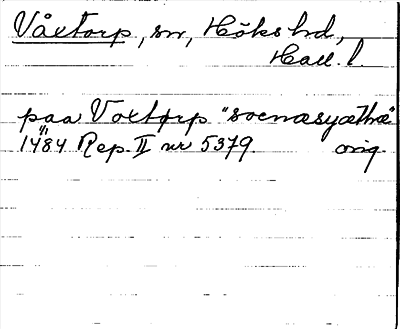 Våxtorp, sn, Höks hd,
Hall. l
paa Voxtørp "soenæsyæthæ"
1484 Rep. II nr 5379. orig.